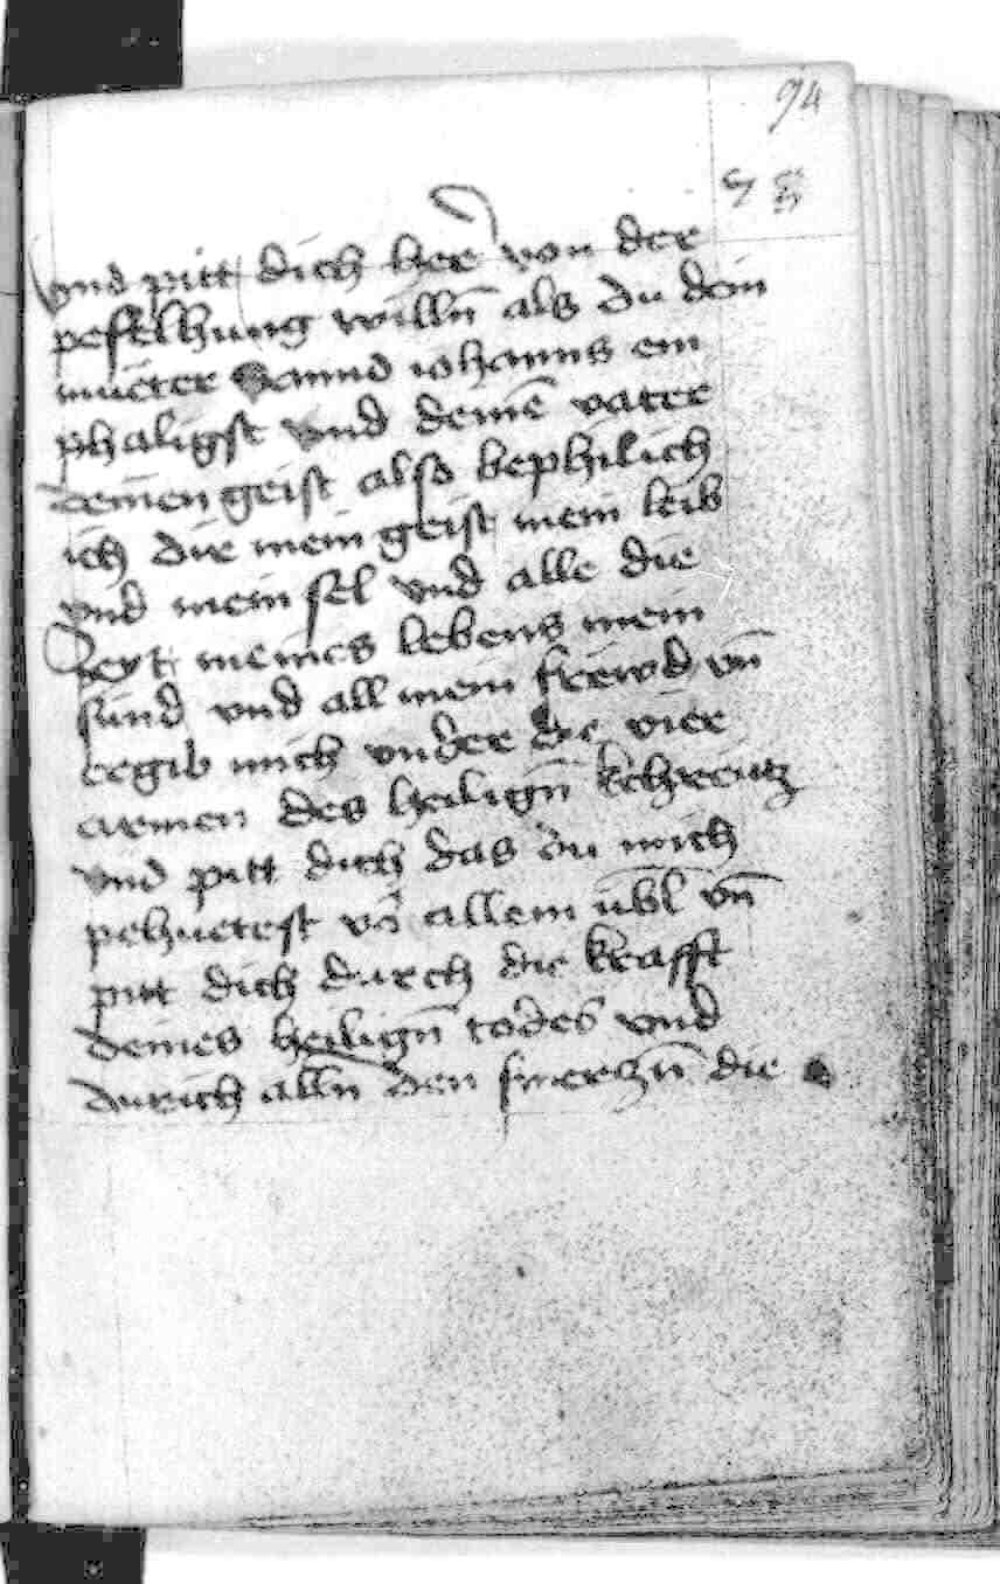 94
vnd pitt dich her von der
pefelhung willn̄ als du dein
mueter Sannd iohanns em
phaligst vnd deinē vater
deinen geist also bephilich
ich dir mein geist mein leib
vnd mein sel vnd alle die
zeyt meines lebens mein
sünd vnd all mein frewd vn̄
ergib mich vnder die vier
armen des heilign̄ kchreutz
vnd pitt dich das du mich
pehuetest vō allem übl vn̄
pitt dich durch die krafft
deines heilign̄ todes vnd
durich alln̄ den smerczn̄ die